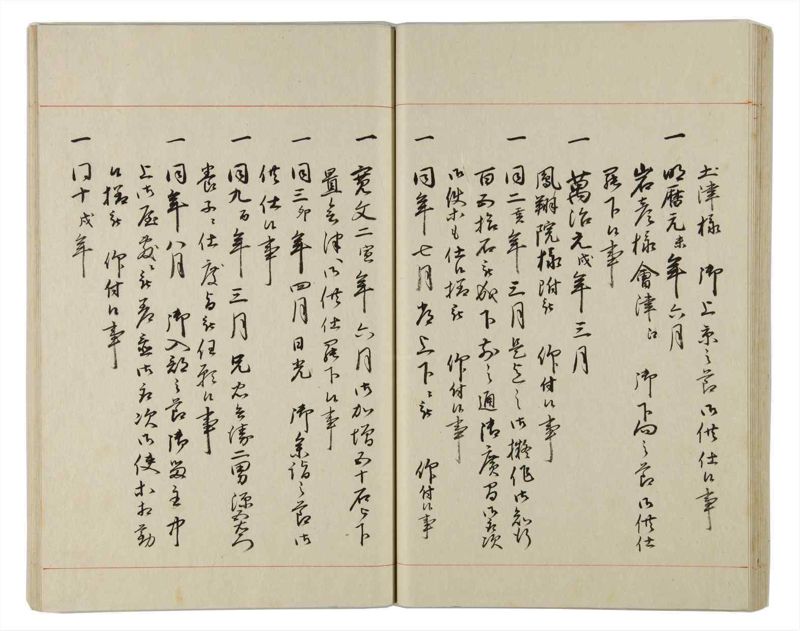 土津様 御上京之節御供仕候事
一 明暦元未年六月
岩彦様會津江 御下向之節御供仕
罷下候事
一 萬治元戌年三月
鳳翔院様附被 仰付候事
一 同二亥年三月是迄之御擬作御知行
百五拾石被成下前之通御広間御取次
御使等も仕候様被 仰付候事
一 同年七月 上下被 仰付候事
一 寛文二寅年六月御加増五十石被下
置会津御供仕罷下候事
一 同三卯年四月日光 御参詣之節御
供仕候事
一 同九酉年三月兄 二男源
養子仕度 任願候事
一 同年八月 御入部之節御留主中
上御屋敷被差置御取次御使等相勤
候様被 仰付候事
一 同十戌年